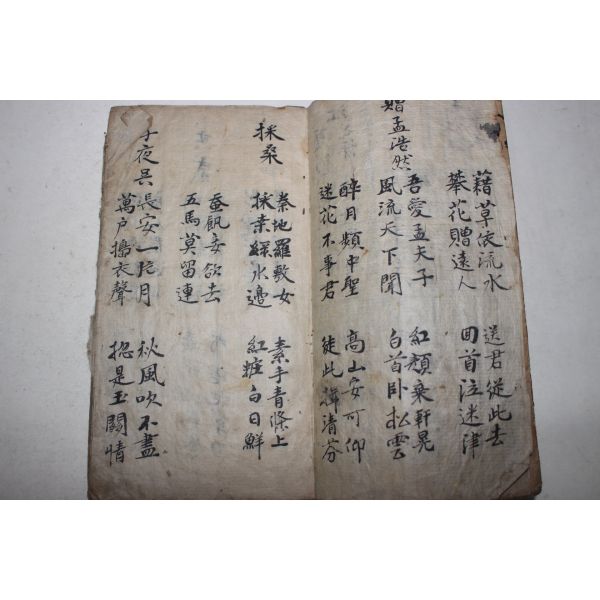 藉草依流水
攀花贈遠人
送君從此去
回首泣迷津
贈孟浩然
吾愛孟夫子
風流天下聞
紅顏棄軒冕
白首臥松雲
醉月頻中聖
迷花不事君
高山安可仰
徒此揖清芬
採桑
秦地羅敷女
採桒綠水邊
素手青條上
紅粧白日鮮
蚕飢妾欲去
五馬莫留連
子夜吳
長安一片月
萬戶搗衣聲
秋風吹不盡
摠是玉關情